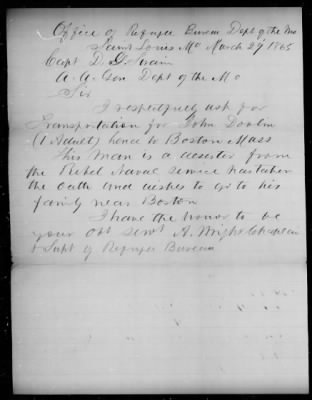 Office of Refugee Bureau Dept of the Mo
Saint Louis Mo March 29 1865
Capt D. J. Swain
A. A. Gen Dept of the Mo
Sir
I respectfully ask for
Transportation for John Doolin
(1 Adult) hence to Boston Mass
This man is a deserter from
the Rebel Naval Service has taken
the Oath and wishes to go to his
family near Boston
I have the honor to be
your Obt Servt A. Wright Chaplain
& Supt of Refugee Bureau